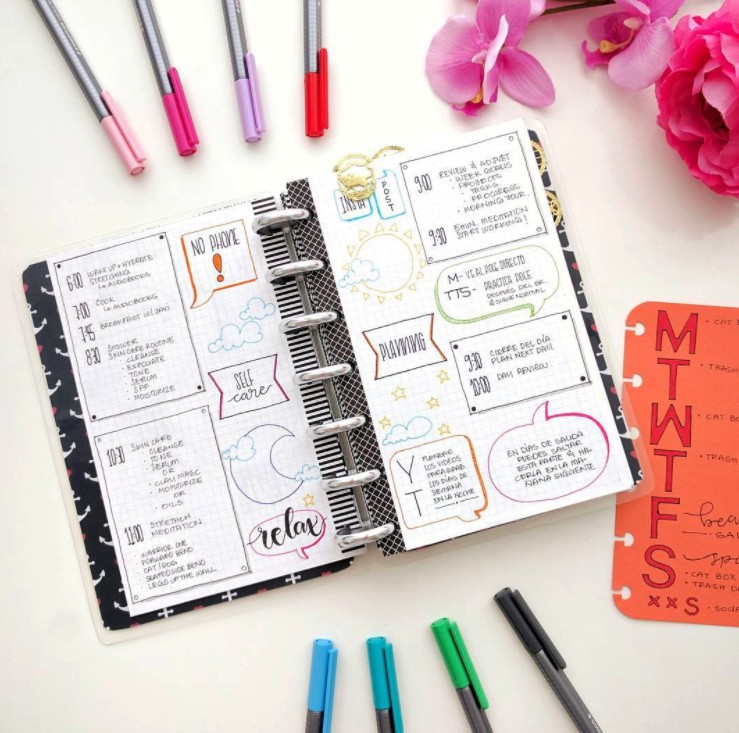 6:00 WAKE UP + HYDRATE
STRETCHING
↳ AUDIOBOOKS
7:00 COOK
↳ AUDIOBOOKS
7:45 BREAKFAST
8:30 SHOWER
SKINCARE ROUTINE
• CLEANSE
• EXFOLIATE
• TONE
• SERUM
• SPF
• MOISTURIZE
NO PHONE
!
SELF
care
10:30 SKIN CARE
• CLEANSE
TONE
SERUM
OR
• CLAY MASC
• MOISTURIZE
OR
• OILS
11:00 STRETCH
MEDITATION
• WARRIOR ONE
FORWARD BEND
CAT/DOG
SEATED SIDE BEND
LEGS UP THE WALL
relax
INSTA
POST
9:00 REVIEW & ADJUST
• WEEK GOALS
• PROJECTS
• TASKS
• PROGRESS
• MORNING JOUR.
9:30 15MIN. MEDITATION
START WORKING!
M- YT AL DIRECTO
TTS- PRACTICA PRCE
DESPUÉS DEL BR.
& SIGUE NORMAL
PLANNING
9:30 CIERRE DEL DÍA
PLAN NEXT DAY!
10:00 DAY REVIEW
YT
MIRAR
LOS VIDEOS
PARA GRAB.
LOS DÍAS DE
SEMANA
EN LA NOCHE
EN DÍAS DE SALIDA
PUEDES SALTAR
ESTA PARTE & HA-
CERLA EN LA MA-
ÑANA SIGUIENTE
M • CAT BO
T • TRASH
W • CAT BO
T • TRASH
F
S
• CAT BOX
• TRASH D
XXS • SOU